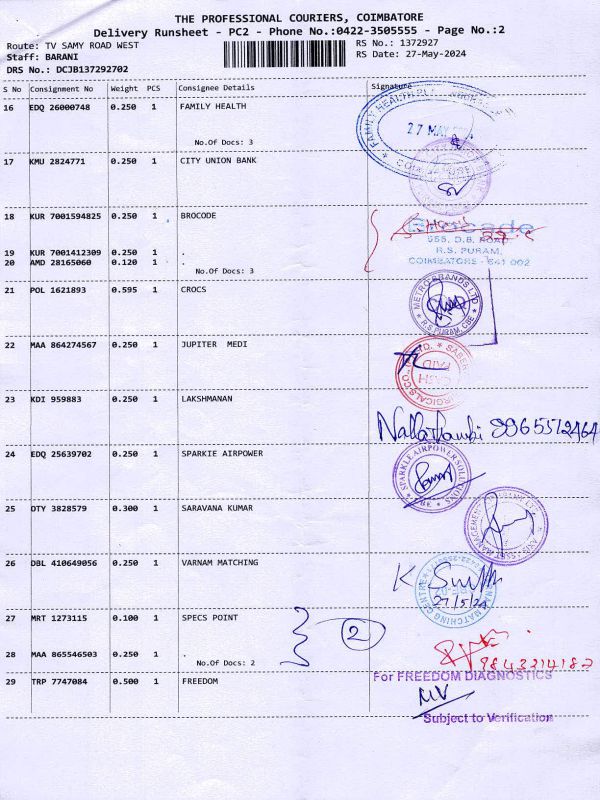 THE PROFESSIONAL COURIERS, COIMBATORE
Delivery Runsheet - PC2 - Phone No.:0422-3505555 - Page No.:2
Route: TV SAMY ROAD WEST RS No.: 1372927
Staff: BARANI RS Date: 27-May-2024
DRS No.: DCJB137292702
S No Consignment No Weight PCS Consignee Details Signature
16 EDQ 26000748 0.250 1 FAMILY HEALTH
FAMILY HEALTH
27 MAY
No.Of Docs: 3
COIMBATORE
17 KMU 2824771 0.250 1 CITY UNION BANK
18 KUR 7001594825 0.250 1 BROCODE
Brocode
555, D.B. ROAD
R.S. PURAM,
19 KUR 7001412309 0.250 1 .
20 AMD 28165060 0.120 1 .
COIMBATORE - 641 002
No.Of Docs: 3
21 POL 1621893 0.595 1 CROCS
METRO BRANDS LTD
R.S PURAM, CBE
22 MAA 864274567 0.250 1 JUPITER MEDI
CASH
PAID
23 KDI 959883 0.250 1 LAKSHMANAN
Nallathambi 9965512464
24 EDQ 25639702 0.250 1 SPARKIE AIRPOWER
SPARKLE AIRPOWER SOLUTIONS
CBE
25 OTY 3828579 0.300 1 SARAVANA KUMAR
26 DBL 410649056 0.250 1 VARNAM MATCHING
MATCHING CENTRE
27/5/24
27 MRT 1273115 0.100 1 SPECS POINT
2
28 MAA 865546503 0.250 1 .
No.Of Docs: 2
9843214182
29 TRP 7747084 0.500 1 FREEDOM
For FREEDOM DIAGNOSTICS
Subject to Verification